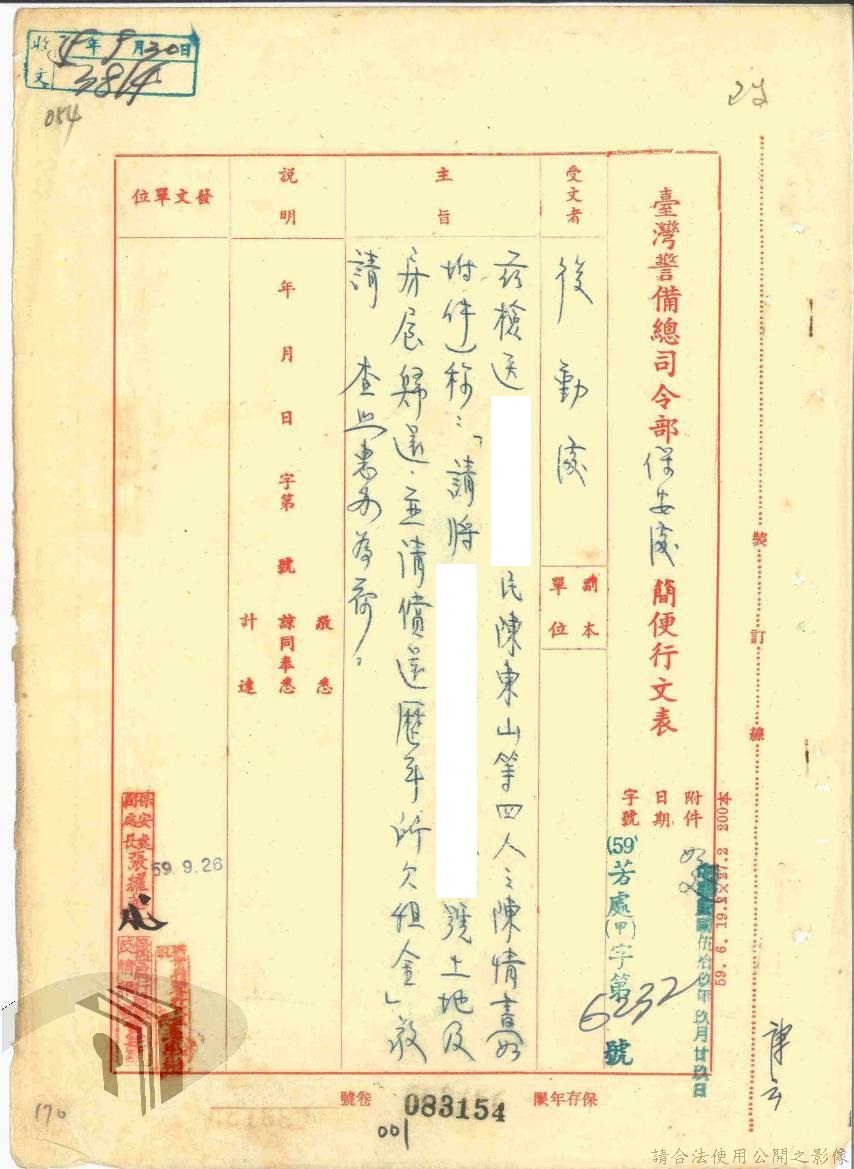 收文
59年9月30日
3814
084
臺灣警備總司令部保安處簡便行文表
附件
如文
日期
中華民國伍拾玖年玖月廿玖日
字號
(59)若處(甲)字第6232號
受文者
後勤處
副本單位
主旨
茲檢送 民陳東山等四人之陳情書(如
附件)稱:「請將 號土地及
房屋歸還,並清償還歷年所欠租金」敬
請 查照惠辦為荷。
說明
年 月 日 字第 號
敬悉
諒同奉悉
計達
發文單位
保安處副處長張耀
59.9.26
裝訂線
59. 6. 19.2×27.2 200本
保存年限
卷號
083154
001
170
請合法使用公開之影像